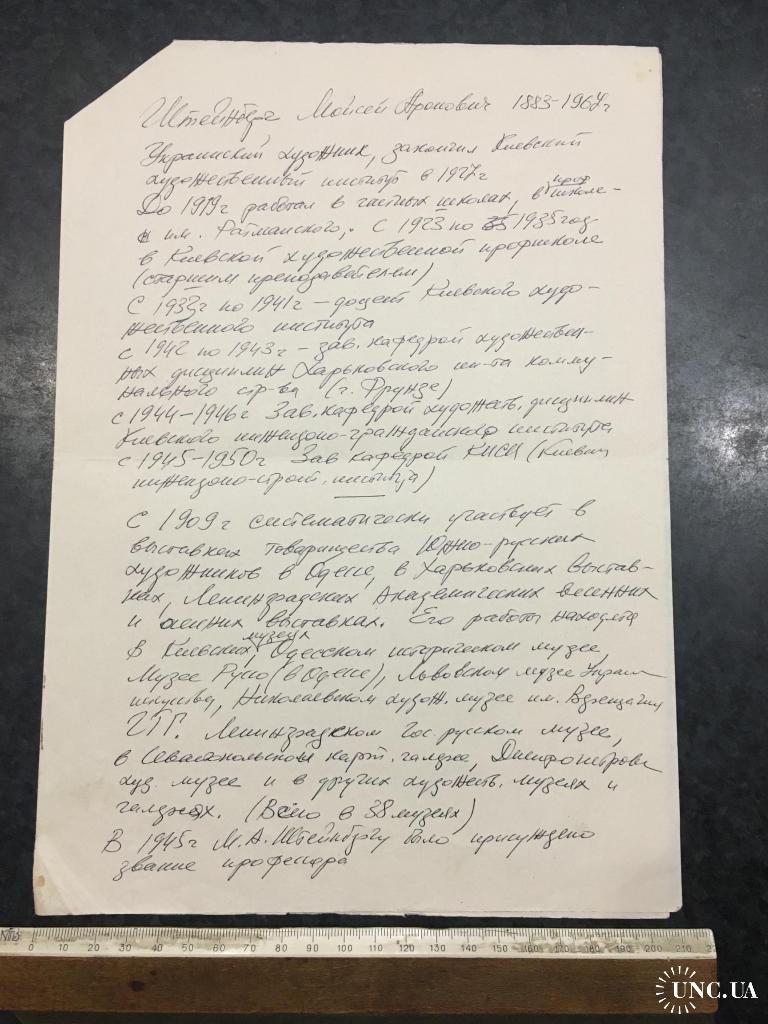 Штейнберг Моисей Аронович 1883-1964г
Украинский художник, закончил Киевский
художественный институт в 1927г
До 1919г работал в частных школах, в проф школе
им. Ратманского, С 1923 по 1935год
в Киевской художественной профшколе
(старшим преподавателем)
С 1933г по 1941г – доцент Киевского худо-
жественного института
с 1942 по 1943г – зав. кафедрой художествен-
ных дисциплин Харьковского ин-та комму-
нального стр-ва (г. Фрунзе)
с 1944-1946г Зав. кафедрой художеств. дисциплин
Киевского инженерно-гражданского института
с 1945-1950г Зав кафедрой КИСИ (Киевск
инженерно-строит. институт)
С 1909г систематически участвует в
выставках товарищества Южно-русских
художников в Одессе, в Харьковских выстав-
ках, Ленинградских Академических весенних
и осенних выставках. Его работы находятся
в Киевских музеях, Одесском историческом музее,
Музее Руно (в Одессе), Львовском музее Украин
искусства, Николаевском худож. музее им. Верещагина
ГТГ. Ленинградском Гос. русском музее,
в Севастопольской карт. галерее, Днепропетровск
худ. музее и в других художеств. музеях и
галереях. (Всего в 38 музеях)
В 1945г М.А. Штейнбергу было присуждено
звание профессора
0 10 20 30 40 50 60 70 80 90 100 110 120 130 140 150 160 170 180 190 200 210
UNC.UA